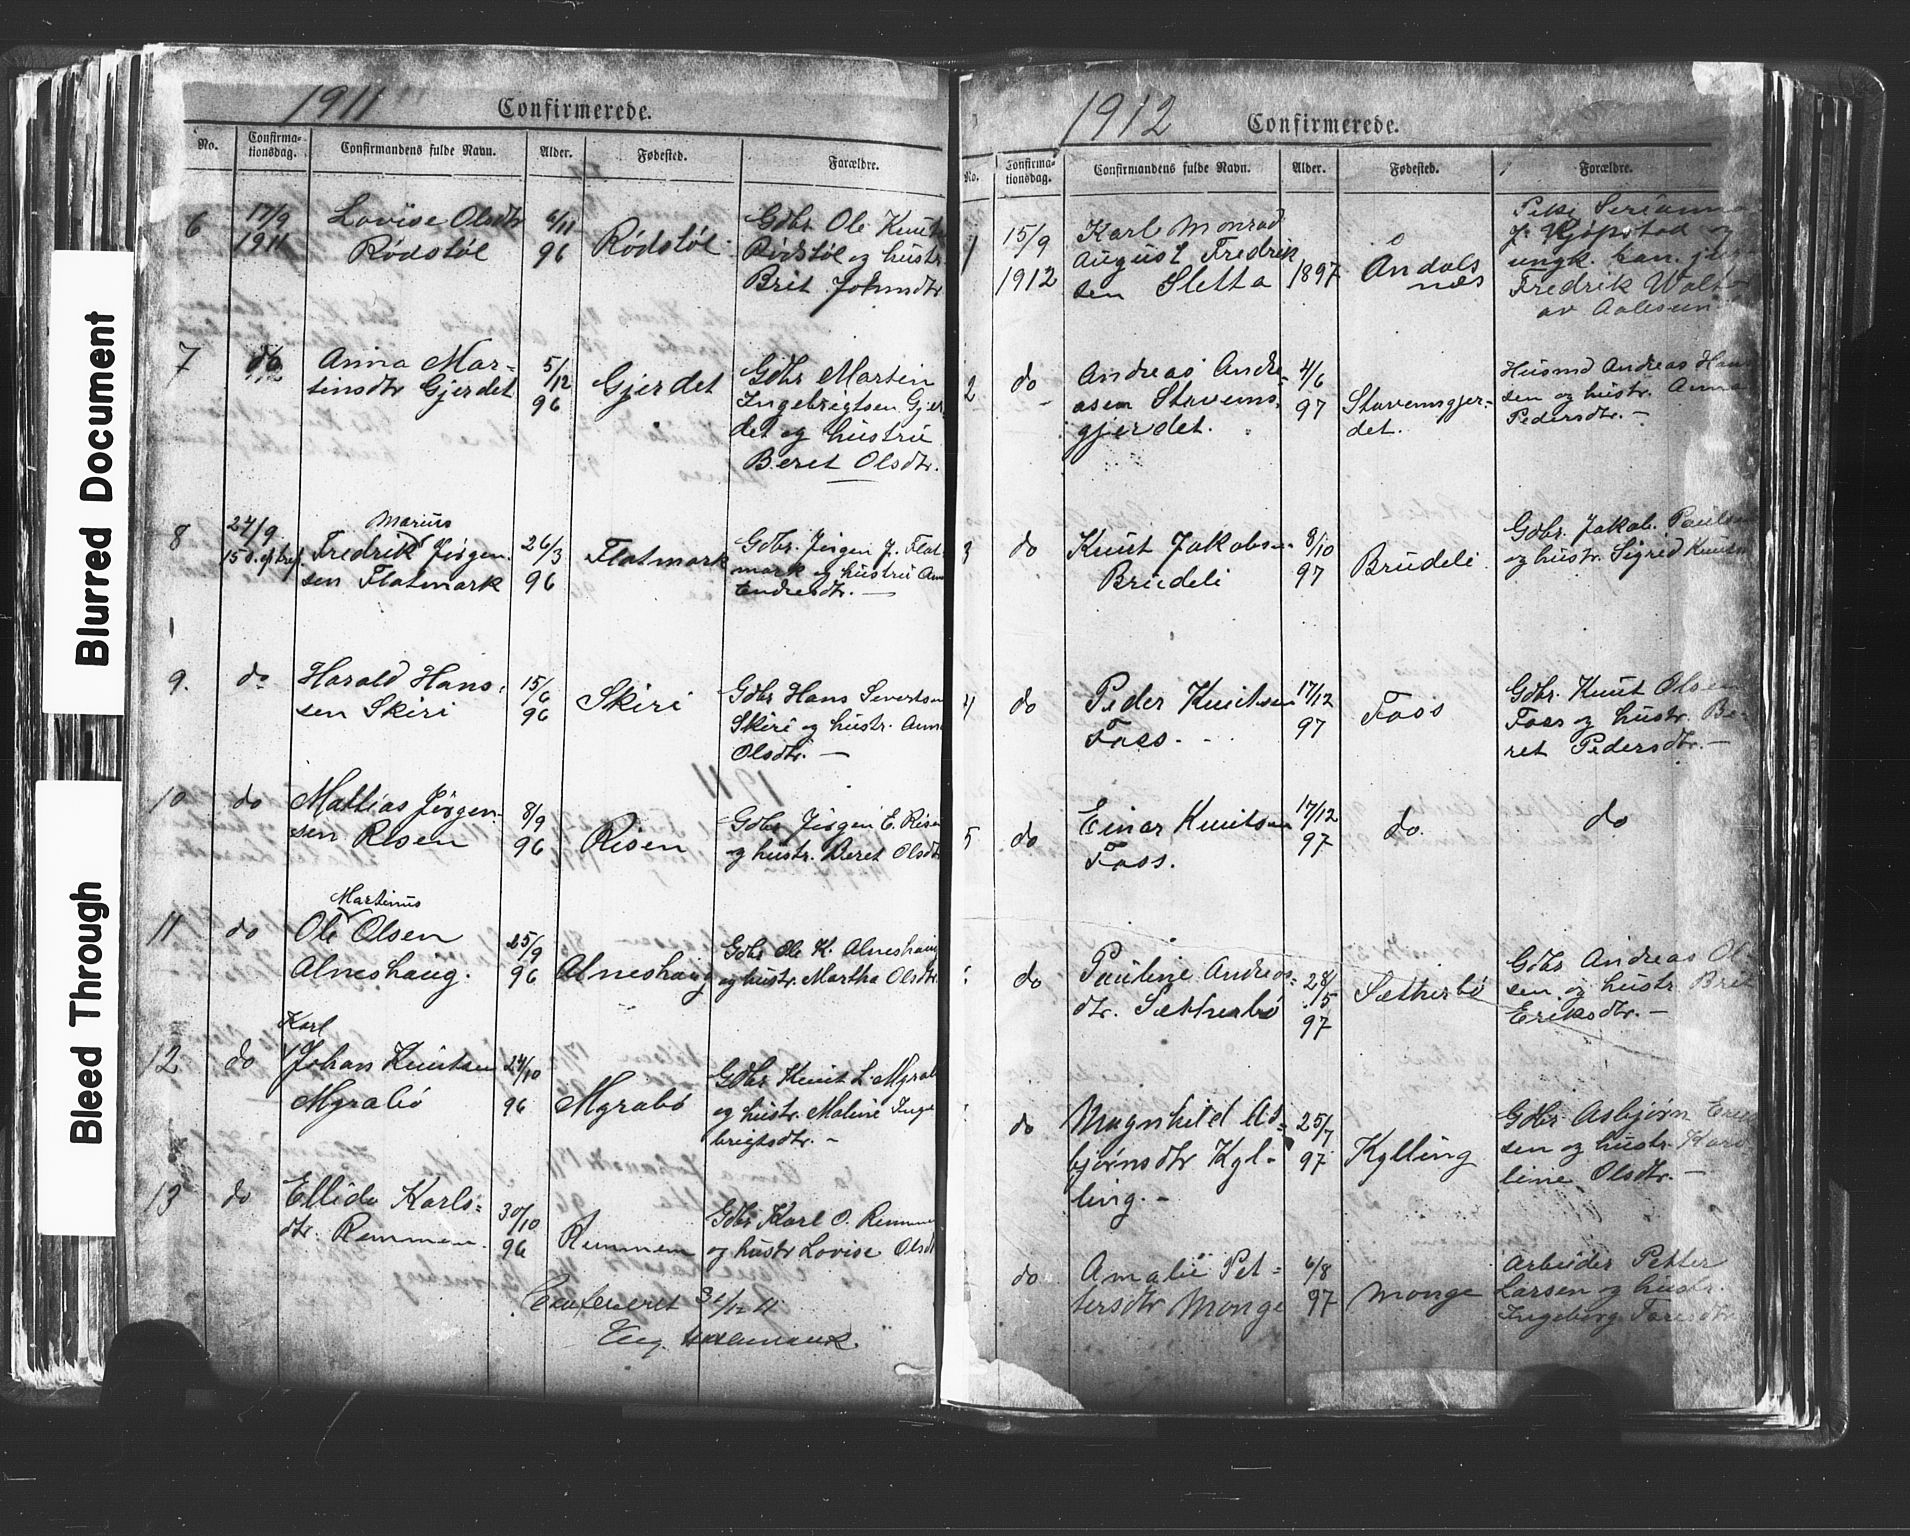 Blurred Document
Bleed Through
1911
Confirmerede.
No.
Confirma-
tionsdag.
Confirmandens fulde Navn.
Alder.
Fødested.
Forældre.
6
17/9
1911
Lovise Olsdtr
Rødstøl
6/11
96
Rødstøl
Gdbr. Ole Knuts
Rødstøl og hustr.
Brit Johnsdtr
7
do
Anna Mar-
tinsdtr Gjerdet
5/12
96
Gjerdet
Gdbr Martin
Ingebrigtsen Gjer
det og hustru
Beret Olsdtr.
8
24/9
Marius
Fredrik Jørgen-
sen Flatmark
26/3
96
Flatmark
Gdbr. Jørgen J. Flat
mark og hustru Ann
Endresdtr. —
9.
do
Harald Hans-
sen Skiri
15/6
96
Skiri
Gdbr Hans Sivertsen
Skiri og hustr. Anne
Olsdtr. —
10
do
Mathias Jørgen-
sen Risen
8/9
96
Risen
Gdbr Jørgen E. Risen
og hustr. Beret Olsdtr
11
do
Martinus
Ole Olsen
Alneshaug.
25/9
96
Alneshaug
Gdbr Ole K. Alneshaug
og hustr. Martha Olsdtr.
12
do
Karl
Johan Knutsen
Myrabø
24/10
96
Myrabø
Gdbr Knut L. Myrabø
og hustr. Maline Inge
brigtsdtr. —
13
do
Ellida Karls-
dtr. Remmen
30/10
96
Remmem
Gdbr Karl O. Remmen
og hustr Lovise Olsdt
31/12 11
1912
Confirmerede.
No.
Confirma-
tionsdag.
Confirmandens fulde Navn.
Alder.
Fødested.
Forældre.
1
15/9
1912
Karl Monrad
August Fredrik
sen Sletta
1897
Åndals
næs
Pike Serianna
J. Kjøpstad og
ungk.
Fredrik
av Aalesun
2
do
Andreas Andre-
asen Stavems-
gjerdet.
4/6
97
Stavemsgjer-
det.
Husmd Andreas Han
sen og hustr. Anna
Pedersdtr. —
3
do
Knut Jakobsen
Brudeli
8/10
97
Brudeli
Gdbr. Jakob. Paulsen
og hustr. Sigrid Knuts
4
do
Peder Knutsen
Foss. -
17/12
97
Foss
Gdbr. Knut Olsen
Foss og hustr. Be-
ret Pedersdtr. —
5
do
Einar Knutsen
Foss.
17/12
97
do.
do
do
Pauline Andreas-
dtr. Sætherbø
28/5
97
Sætherbø
Gdbr Andreas Ol
sen og hustr Brit
Eriksdtr. —
do
Magnhild As-
bjørnsdtr Kyl-
ling. -
25/7
97
Kylling
Gdbr. Asbjørn
sen og hustr. Karo
line Olsdtr. —
do
Amalie Pet-
tersdtr Monge
6/8
97
Monge
Arbeider Petter
Larsen og hustr.
Ingeborg